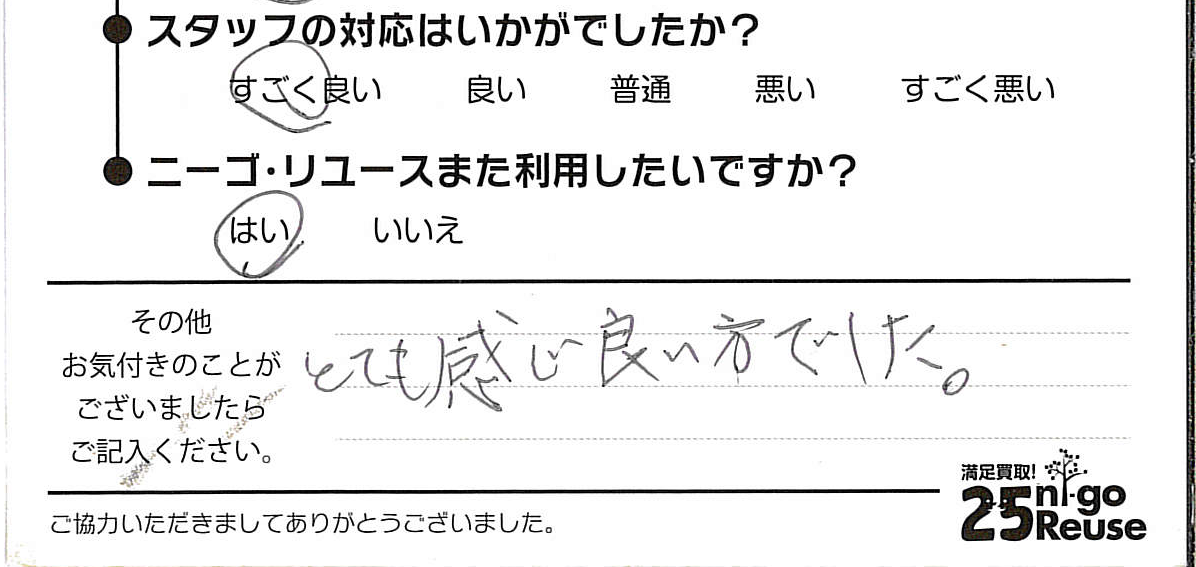 スタッフの対応はいかがでしたか？
すごく良い 良い 普通 悪い すごく悪い
ニーゴ・リユースまた利用したいですか？
はい いいえ
その他
お気付きのことが
ございましたら
ご記入ください。
とても感じ良い方でした。
満足買取!
25 ni-go
Reuse
ご協力いただきましてありがとうございました。